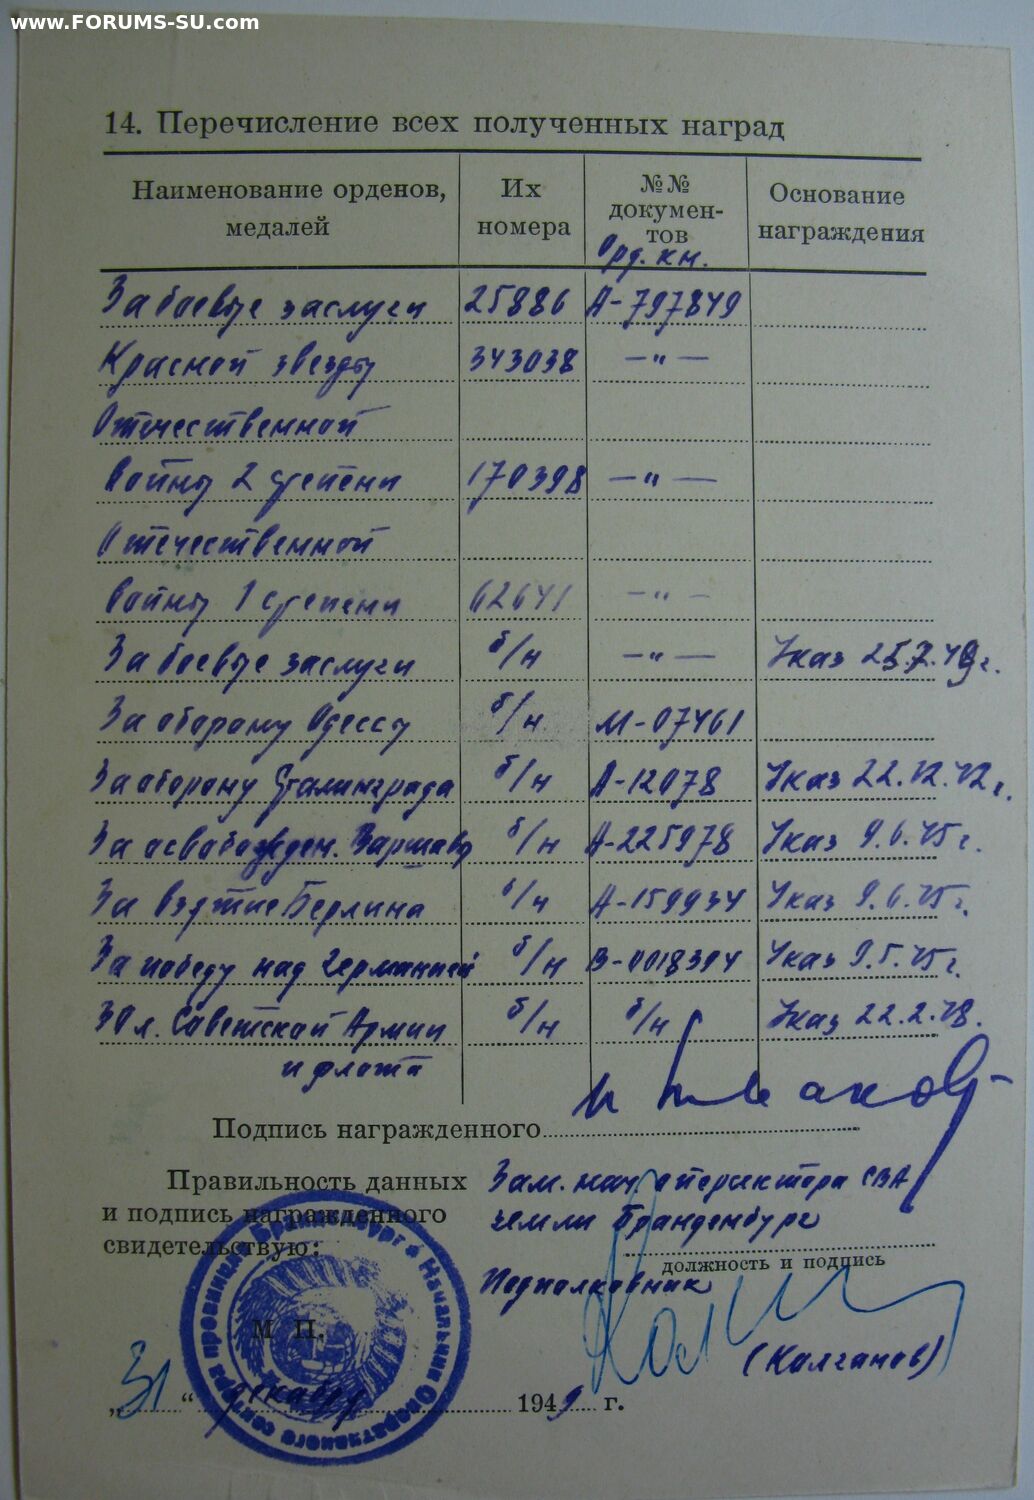 www.FORUMS-SU.com
14. Перечисление всех полученных наград
Наименование орденов, медалей | Их номера | №№ документов | Основание награждения
Орд. кн.
За боевые заслуги 25886 А-797849
Красной звезды 343038 —"—
Отечественной
войны 2 степени 170398 —"—
Отечественной
войны 1 степени 62641 —"—
За боевые заслуги б/н —"— Указ 25.7.49г.
За оборону Одессы б/н М-07461
За оборону Сталинграда б/н А-12078 Указ 22.12.42г.
За освобожден. Варшавы б/н А-225978 Указ 9.6.45г.
За взятие Берлина б/н А-159934 Указ 9.6.45г.
За победу над Германией б/н В-0018394 Указ 9.5.45г.
30 л. Советской Армии б/н б/н Указ 22.2.48.
и флота
Подпись награжденного
Правильность данных
и подпись награжденного
свидетельствую:
Зам. нач. оперсектора СВА
земли Бранденбург
должность и подпись
Подполковник
(Калганов)
М П.
„31“ декабря 1949 г.
Начальник Оперативного сектора провинции Бранденбург